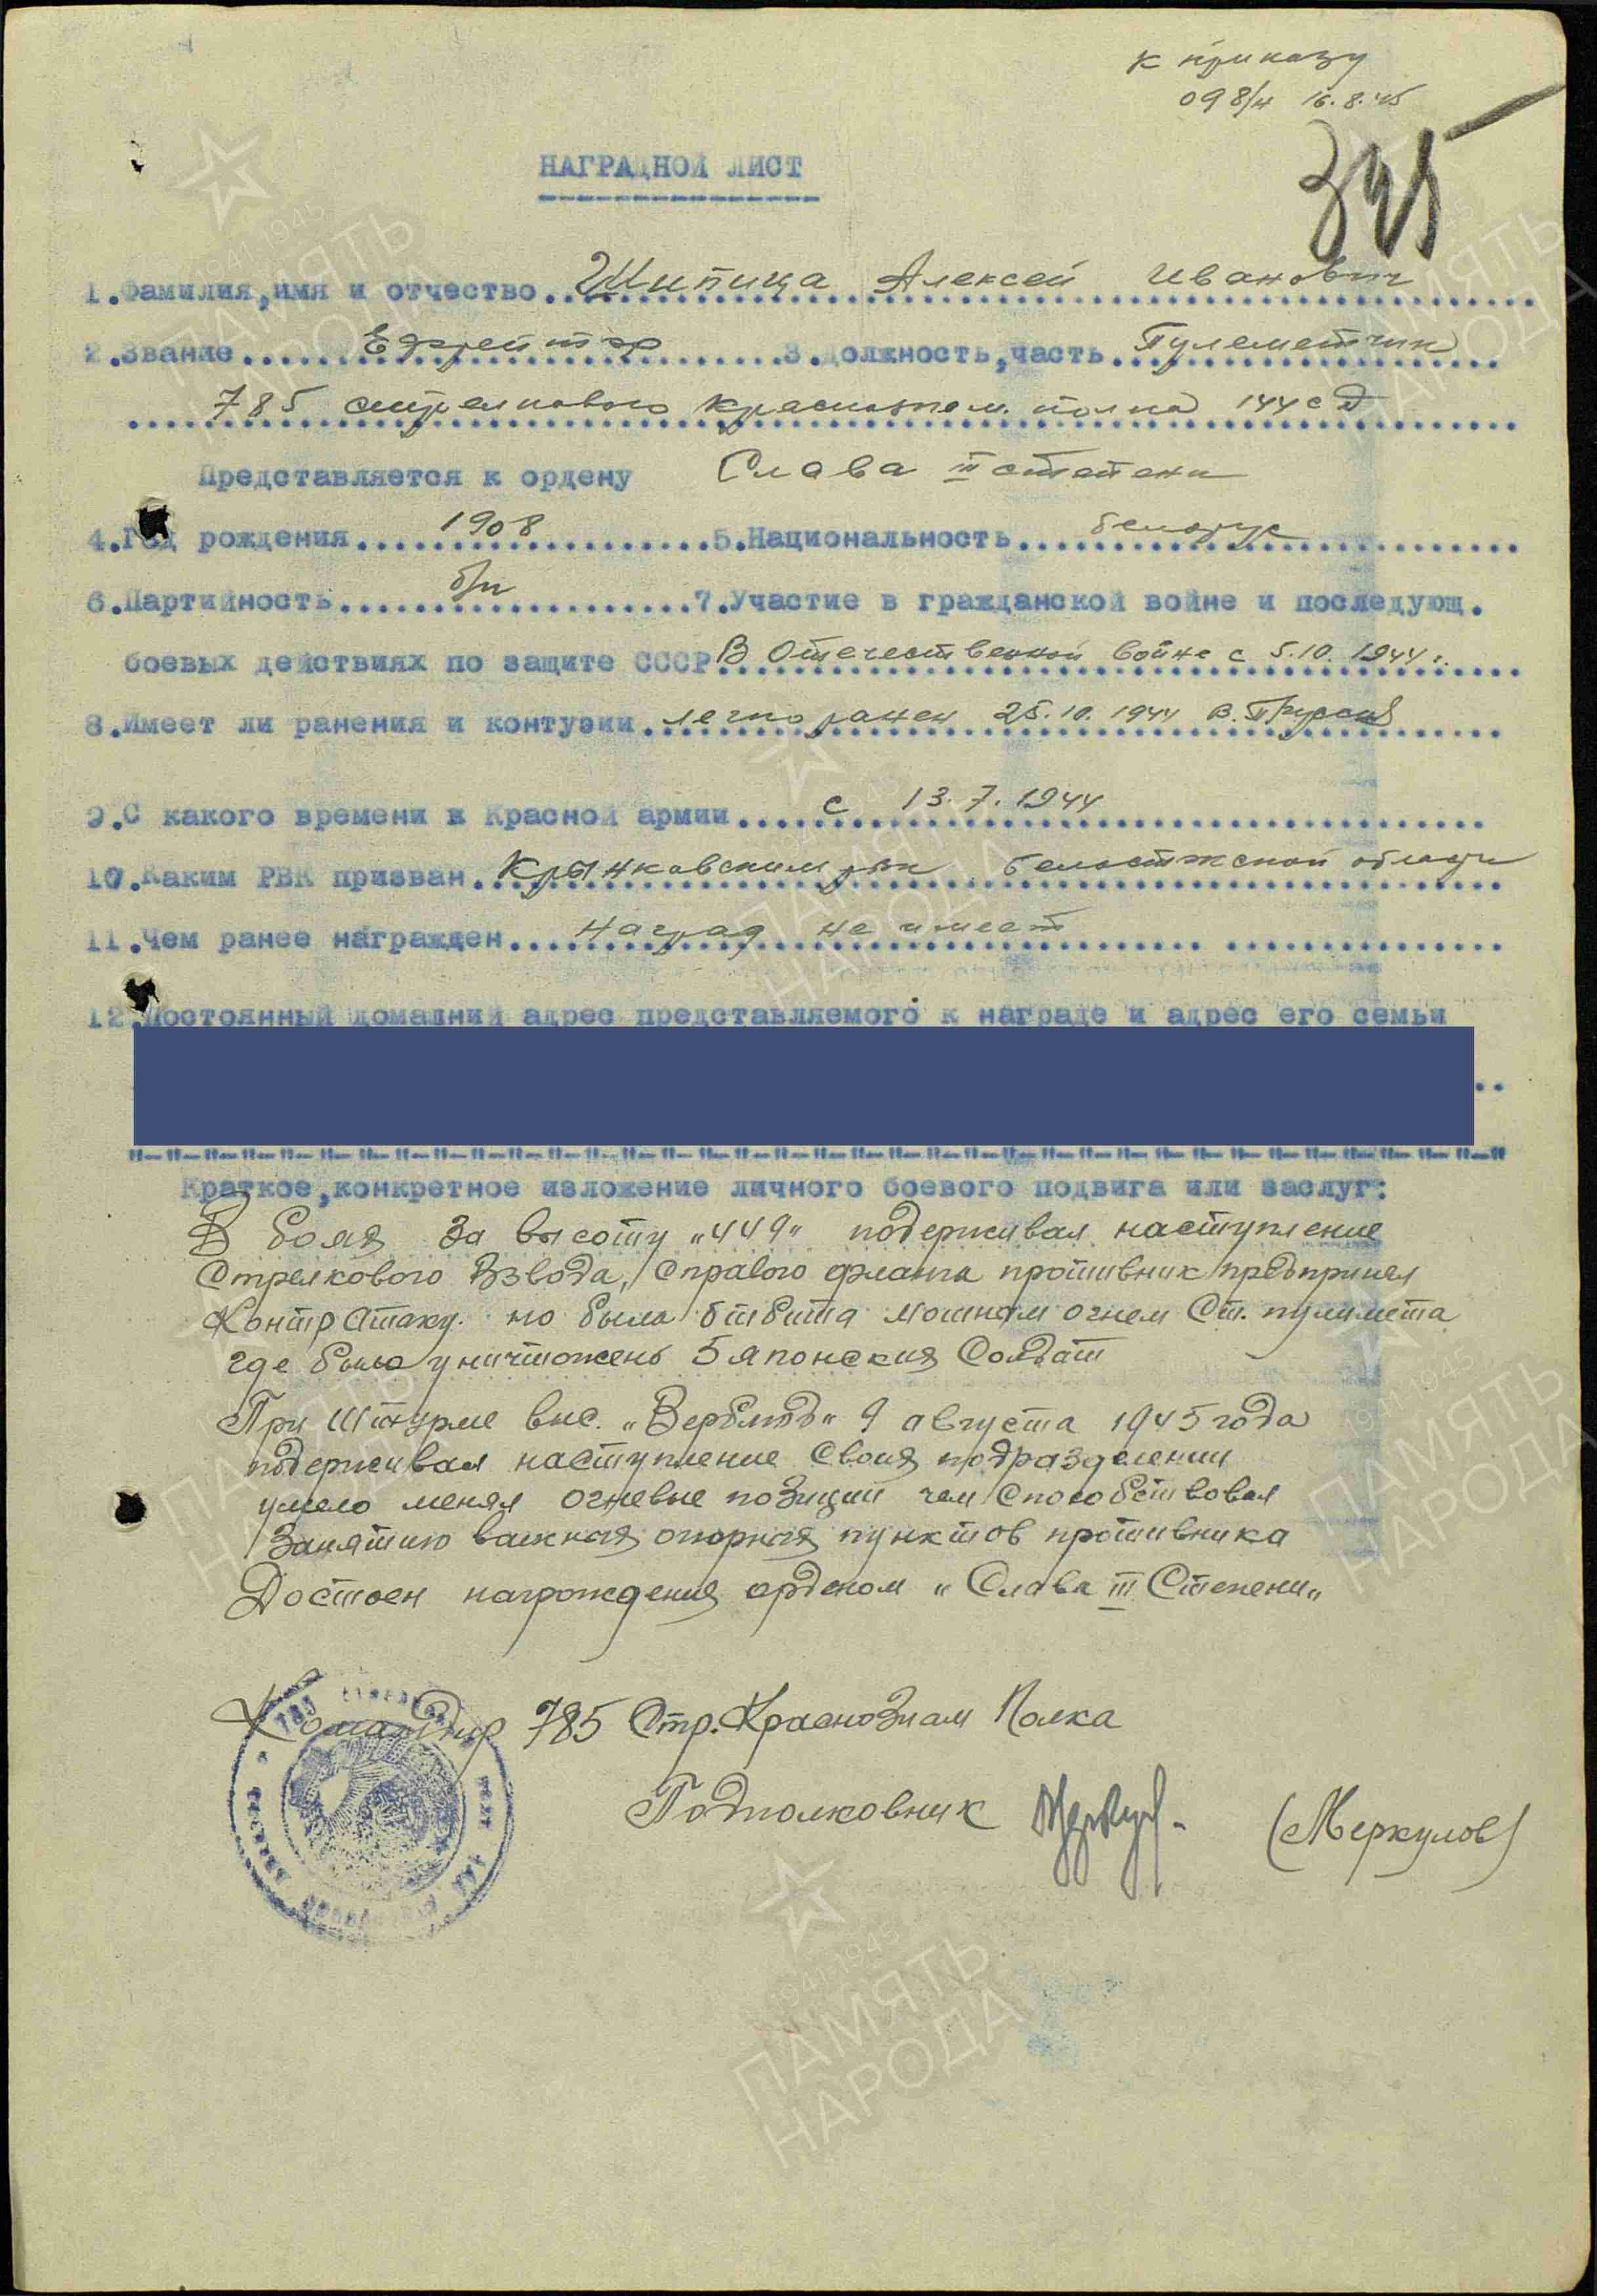 к приказу
098/н 16.8.45
325
НАГРАДНОЙ ЛИСТ
1.Фамилия,имя и отчество Шипица Алексей Иванович
2.Звание Ефрейтор 3.Должность,часть Пулеметчик
785 стрелкового краснознам. полка 144 сд
Представляется к ордену Слава III степени
4.Год рождения 1908 5.Национальность белорус
6.Партийность б/п 7.Участие в гражданской войне и последующ.
боевых действиях по защите СССР В Отечественной войне с 5.10.1944 г.
8.Имеет ли ранения и контузии легко ранен 25.10.1944 В. Пруссия
9.С какого времени в Красной армии с 13.7.1944
10.Каким РВК призван Крынковским рвк Белостокской области
11.Чем ранее награжден Наград не имеет
12.Постоянный домашний адрес представляемого к награде и адрес его семьи
Краткое,конкретное изложение личного боевого подвига или заслуг:
В боях за высоту „449" подерживал наступление
Стрелкового Взвода, Справого фланга противник предпринял
Контр Атаку. но была отбита мощным огнем Ст. пулимета
где было уничтожено 5 японских Солдат
При Штурме выс. „Верблюд" 9 августа 1945 года
подерживая наступление Своих подразделении
умело менял огневые позиции чем Способствовал
Занятию важных опорных пунктов противника
Достоен награждения орденом „Слава III Степени"
Командир 785 Стр. КрасноЗнам Полка
Подполковник (Меркулов)
1941 1945
ПАМЯТЬ
НАРОДА